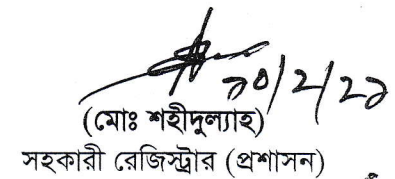 ১০/২/২১
(মোঃ শহীদুল্যাহ)
সহকারী রেজিস্ট্রার (প্রশাসন)